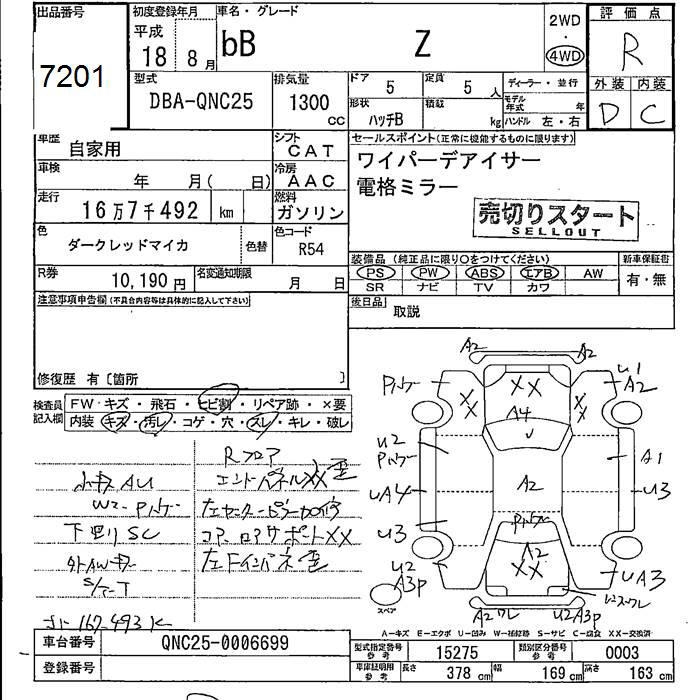 出品番号
7201
初度登録年月
平成
18年 8月
車名・グレード
bB Z
2WD
・
4WD
評価点
R
外装 内装
D C
型式
DBA-QNC25
排気量
1300 cc
ドア 5
定員 5 人
形状 ハッチB
積載 kg
ディーラー・並行
モデル年式 年
ハンドル 左・右
車歴 自家用
シフト CAT
車検 年 月( 日)
冷房 AAC
走行 16万7千492 km
燃料 ガソリン
色 ダークレッドマイカ
色替
色コード R54
R券 10,190円
名変通知期限 月 日
セールスポイント(正常に機能するものに限ります)
ワイパーデアイサー
電格ミラー
売切りスタート
SELLOUT
装備品(純正品に限り〇をつけてください)
新車保証書
PS PW ABS エアB AW
SR ナビ TV カワ
有・無
後日品 取説
注意事項申告欄(不具合内容等は具体的に記入して下さい)
修復歴 有〔箇所 〕
検査員記入欄
FW・キズ・飛石・ヒビ割・リペア跡・×要
内装・キズ・汚レ・コゲ・穴・スレ・キレ・破レ
Rフロア
小キズAU
W2-Pハゲ
下廻りSC
外AWキズ
S/T-T
167,493K
エンドパネルXX 歪
コアロアサポートXX
左Fインパネ歪
A2 A2
Pハゲ
XX
XX
XX
U1
A2
A4
U2
Pハゲ
A1
UA4
A2
U3
U3
Pハゲ
A2
XX
U2
A3P
UA3
スペア
A2ワレ
U2A3P
A-キズ E-エクボ U-凹み W-補修跡 S-サビ C-腐食 XX-交換済
車台番号 QNC25-0006699
登録番号
型式指定番号 参考 15275
類別区分番号 参考 0003
車庫証明用 参考
長さ 378 cm
幅 169 cm
高さ 163 cm